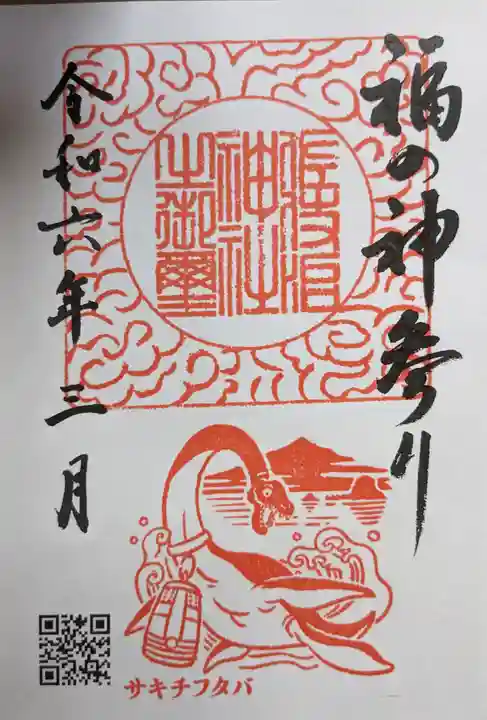 福の神参り
隠津島
神社
之御璽
令和六年三月
サキチフタバ